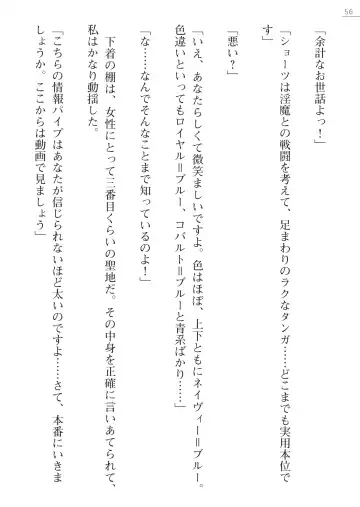 56
「余計なお世話よっ！」
「ショーツは淫魔との戦闘を考えて、足まわりのラクなタンガ……どこまでも実用本位で
す」
「悪い？」
「いえ、あなたらしくて微笑ましいですよ。色はほぼ、上下ともにネイヴィー＝ブルー。
色違いといってもロイヤル＝ブルー、コバルト＝ブルーと青系ばかり……」
「な……なんでそんなことまで知っているのよ！」
下着の棚は、女性にとって三番目くらいの聖地だ。その中身を正確に言いあてられて、
私はかなり動揺した。
「こちらの情報パイプはあなたが信じられないほど太いのですよ……さて、本番にいきま
しょうか。ここからは動画で見ましょう」